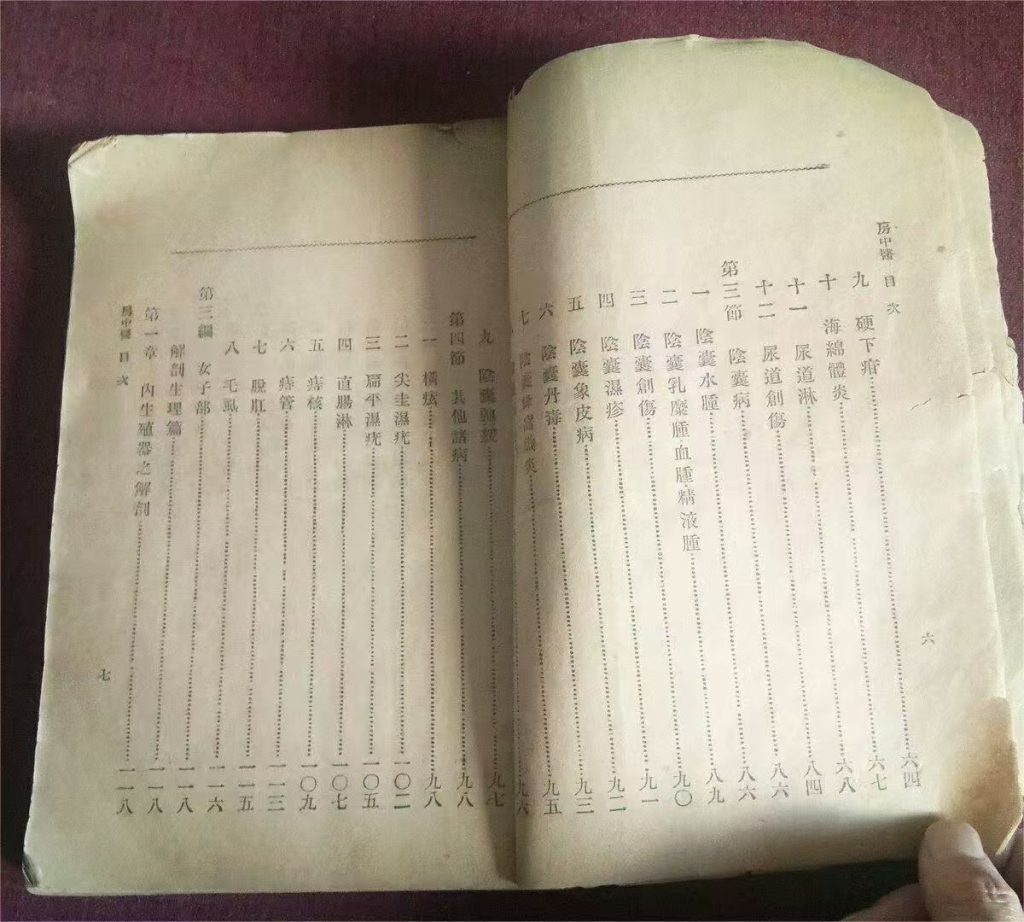 房中醫 目次 六
九 硬下疳 六四
十 海綿體炎 六七
十一 尿道淋 六八
十二 尿道創傷 八四
第三節 陰囊病 八六
一 陰囊水腫 八六
二 陰囊乳糜腫血腫精液腫 八九
三 陰囊創傷 九〇
四 陰囊濕疹 九一
五 陰囊象皮病 九二
六 陰囊丹毒 九三
七 陰囊蜂窩織炎 九五
九六
九 陰囊 九七
第四節 其他諸病 九八
一 橫痃 九八
二 尖圭濕疣 一〇二
三 扁平濕疣 一〇五
四 直腸淋 一〇七
五 痔核 一〇九
六 痔管 一一三
七 脫肛 一一五
八 毛虱 一一六
第三編 女子部 一一八
解剖生理篇 一一八
第一章 內生殖器之解剖 一一八
房中醫 目次 七